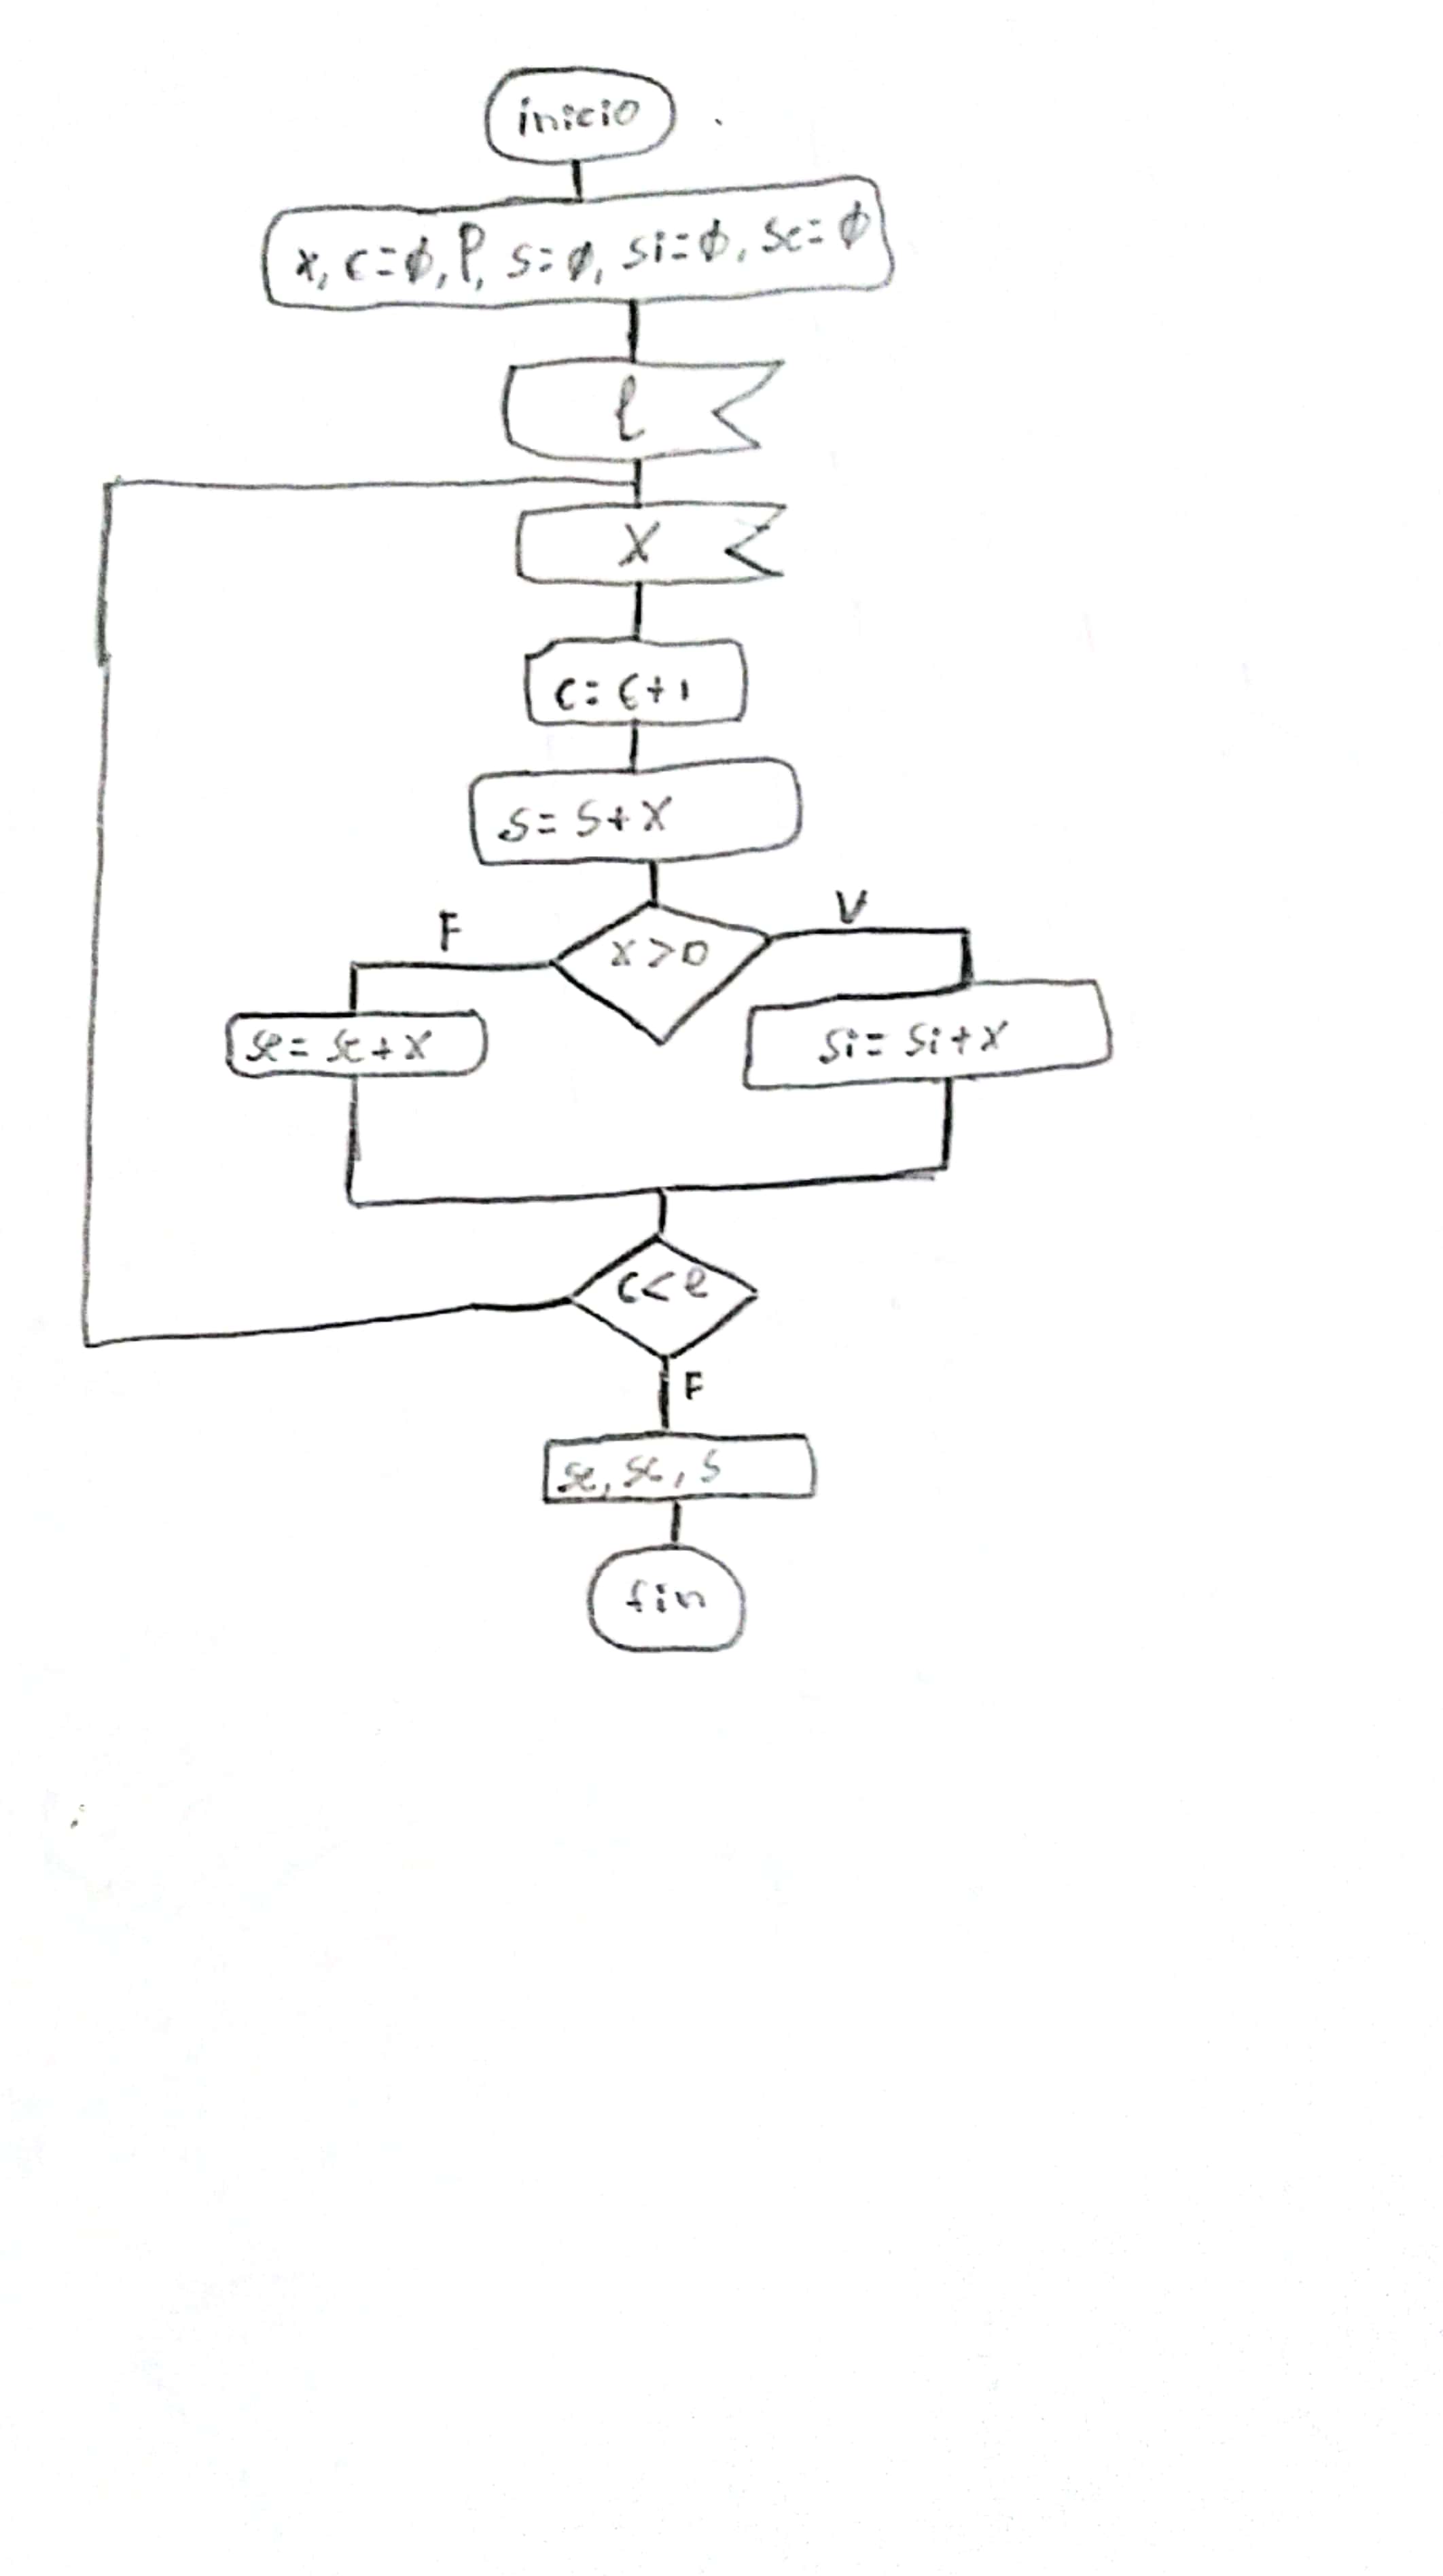 inicio
x, c=ϕ, P, s=ϕ, si=ϕ, sc=ϕ
l
X
c=c+1
s=s+x
F
V
x>0
sc=sc+x
si=si+x
c<l
F
sc, sc, s
fin